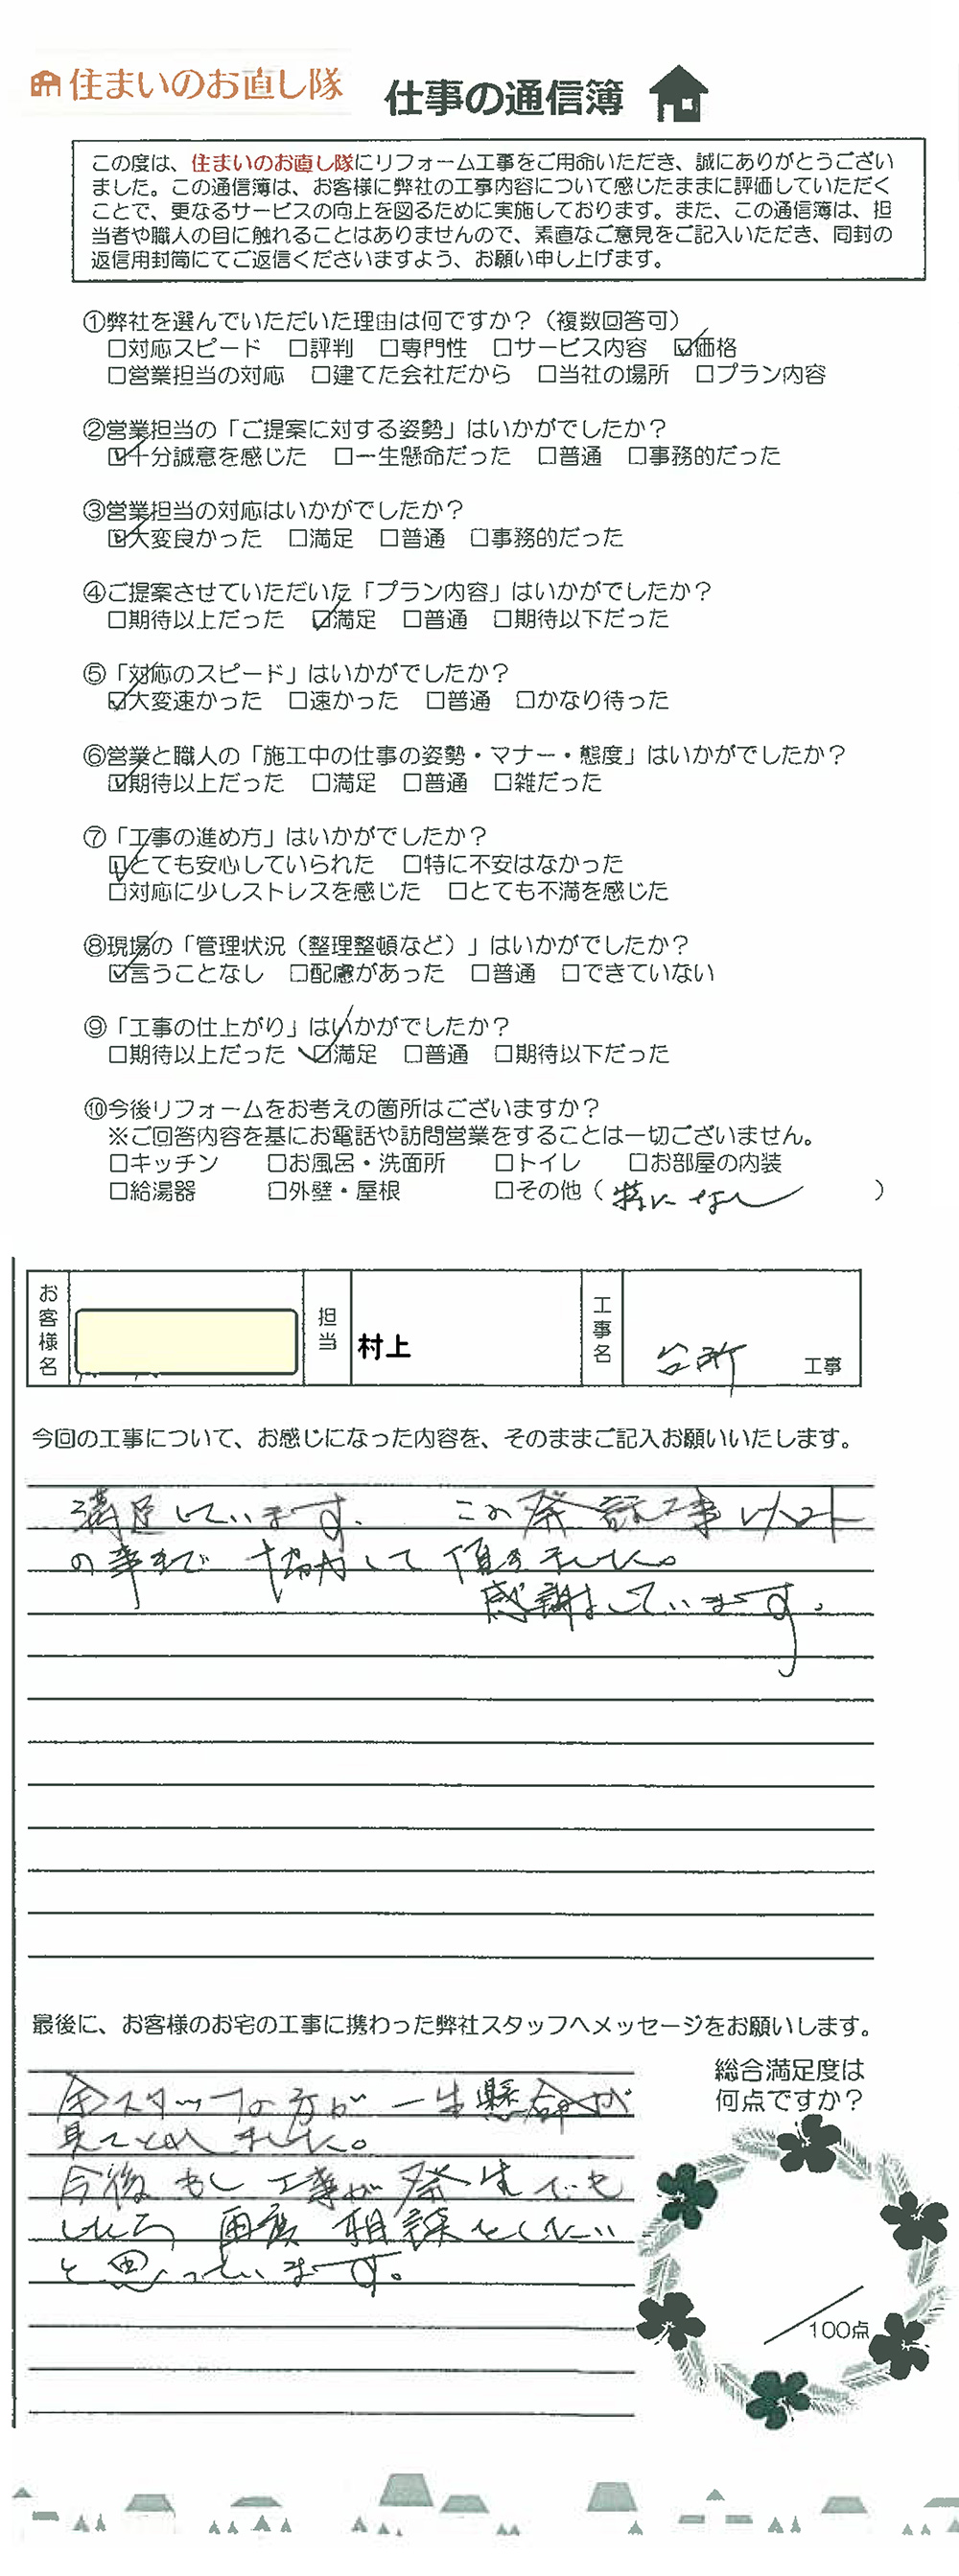 住まいのお直し隊
仕事の通信簿
この度は、住まいのお直し隊にリフォーム工事をご用命いただき、誠にありがとうござい
ました。この通信簿は、お客様に弊社の工事内容について感じたままに評価していただく
ことで、更なるサービスの向上を図るために実施しております。また、この通信簿は、担
当者や職人の目に触れることはありませんので、素直なご意見をご記入いただき、同封の
返信用封筒にてご返信くださいますよう、お願い申し上げます。
①弊社を選んでいただいた理由は何ですか?(複数回答可)
□対応スピード □評判 □専門性 □サービス内容 ☑価格
□営業担当の対応 □建てた会社だから □当社の場所 □プラン内容
②営業担当の「ご提案に対する姿勢」はいかがでしたか?
☑十分誠意を感じた □一生懸命だった □普通 □事務的だった
③営業担当の対応はいかがでしたか?
☑大変良かった □満足 □普通 □事務的だった
④ご提案させていただいた「プラン内容」はいかがでしたか?
□期待以上だった ☑満足 □普通 □期待以下だった
⑤「対応のスピード」はいかがでしたか?
☑大変速かった □速かった □普通 □かなり待った
⑥営業と職人の「施工中の仕事の姿勢・マナー・態度」はいかがでしたか?
☑期待以上だった □満足 □普通 □雑だった
⑦「工事の進め方」はいかがでしたか?
☑とても安心していられた □特に不安はなかった
□対応に少しストレスを感じた □とても不満を感じた
⑧現場の「管理状況(整理整頓など)」はいかがでしたか?
☑言うことなし □配慮があった □普通 □できていない
⑨「工事の仕上がり」はいかがでしたか?
□期待以上だった ☑満足 □普通 □期待以下だった
⑩今後リフォームをお考えの箇所はございますか?
※ご回答内容を基にお電話や訪問営業をすることは一切ございません。
□キッチン □お風呂・洗面所 □トイレ □お部屋の内装
□給湯器 □外壁・屋根 □その他(特になし)
お客様名 担当 村上 工事名 台所 工事
今回の工事について、お感じになった内容を、そのままご記入お願いいたします。
満足しています。 この 工事以外
の事まで 協力して頂きました。
感謝しています。
最後に、お客様のお宅の工事に携わった弊社スタッフへメッセージをお願いします。
全スタッフの方が 一生懸命が
見てとれました。
今後もし工事が発生でも
したら、再度相談をしたい
と思っています。
総合満足度は
何点ですか?
／100点